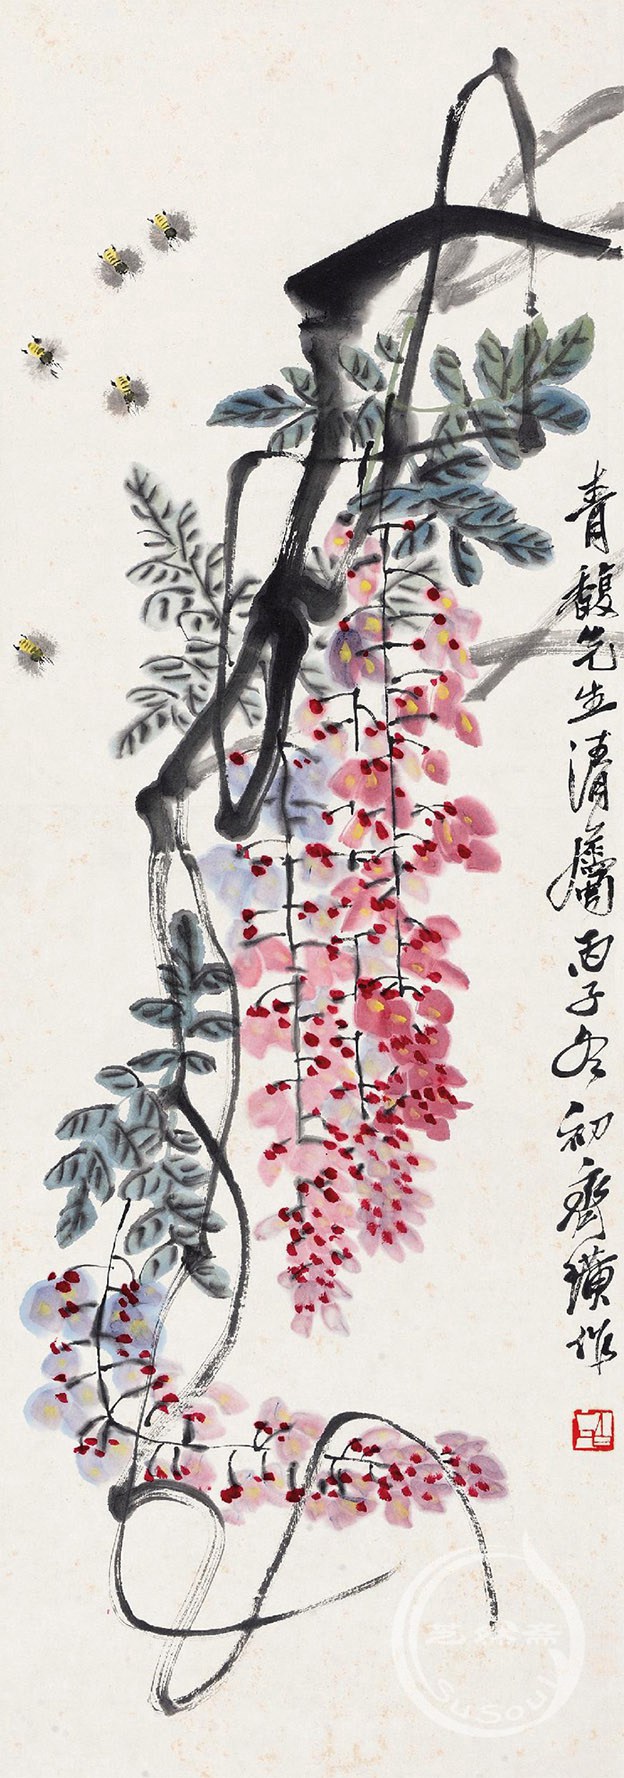 青馥先生清属丙子冬初齐璜作
艺粹斋
SuSoul